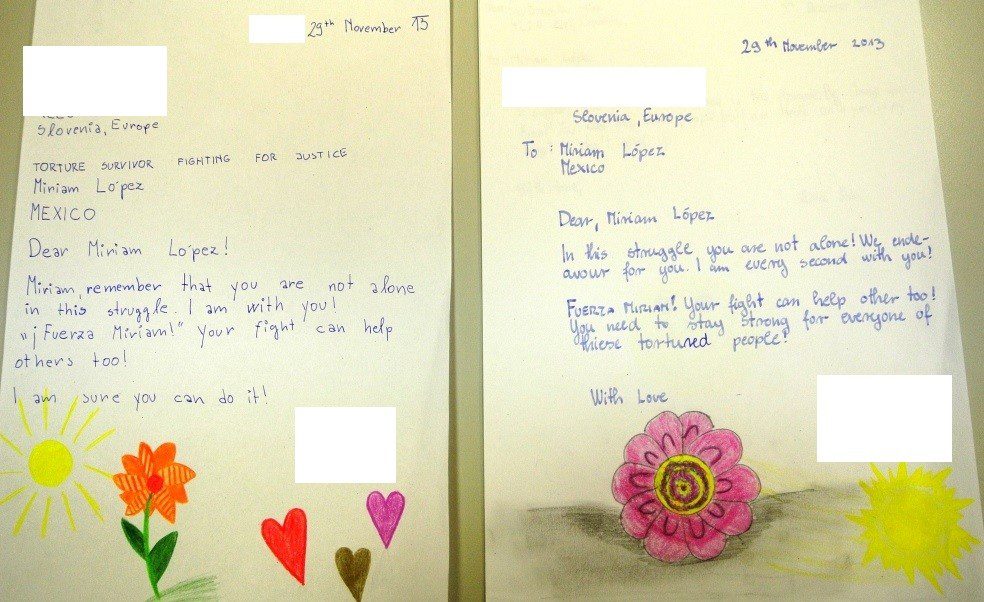 29th November 13
Slovenia, Europe
TORTURE SURVIVOR FIGHTING FOR JUSTICE
Miriam López
MEXICO
Dear Miriam López!
Miriam, remember that you are not alone
in this struggle. I am with you!
"¡Fuerza Miriam!" Your fight can help
others too!
I am sure you can do it!
29th November 2013
Slovenia, Europe
To: Miriam López
Mexico
Dear, Miriam López
In this struggle you are not alone! We ende-
avour for you. I am every second with you!
FUERZA MIRIAM! Your fight can help other too!
You need to stay strong for everyone of
thiese tortured people!
With Love